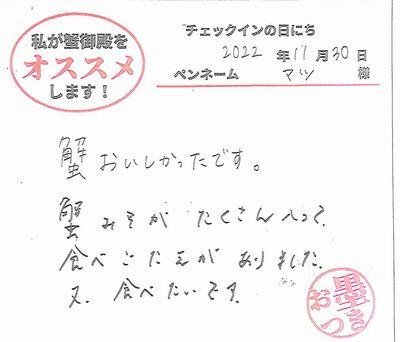 私が蟹御殿を
オススメ
します！
チェックインの日にち
2022 年 11 月 30 日
ペンネーム マツ 様
蟹おいしかったです。
蟹みそがたくさん入って
食べごたえがありました。
又、食べたいです。
お墨つき